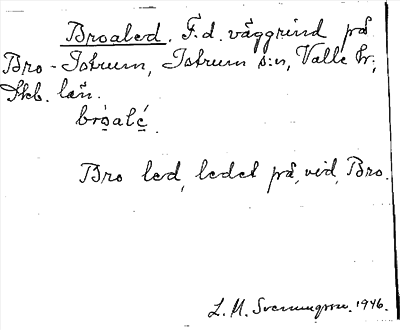 Broaled. F.d. väggrind på
Bro-Istrum, Istrum s:n, Valle hr;
Skb. län.
bròalé.
Bro led, ledet på, vid, Bro.
L. M. Svenungsson. 1946.